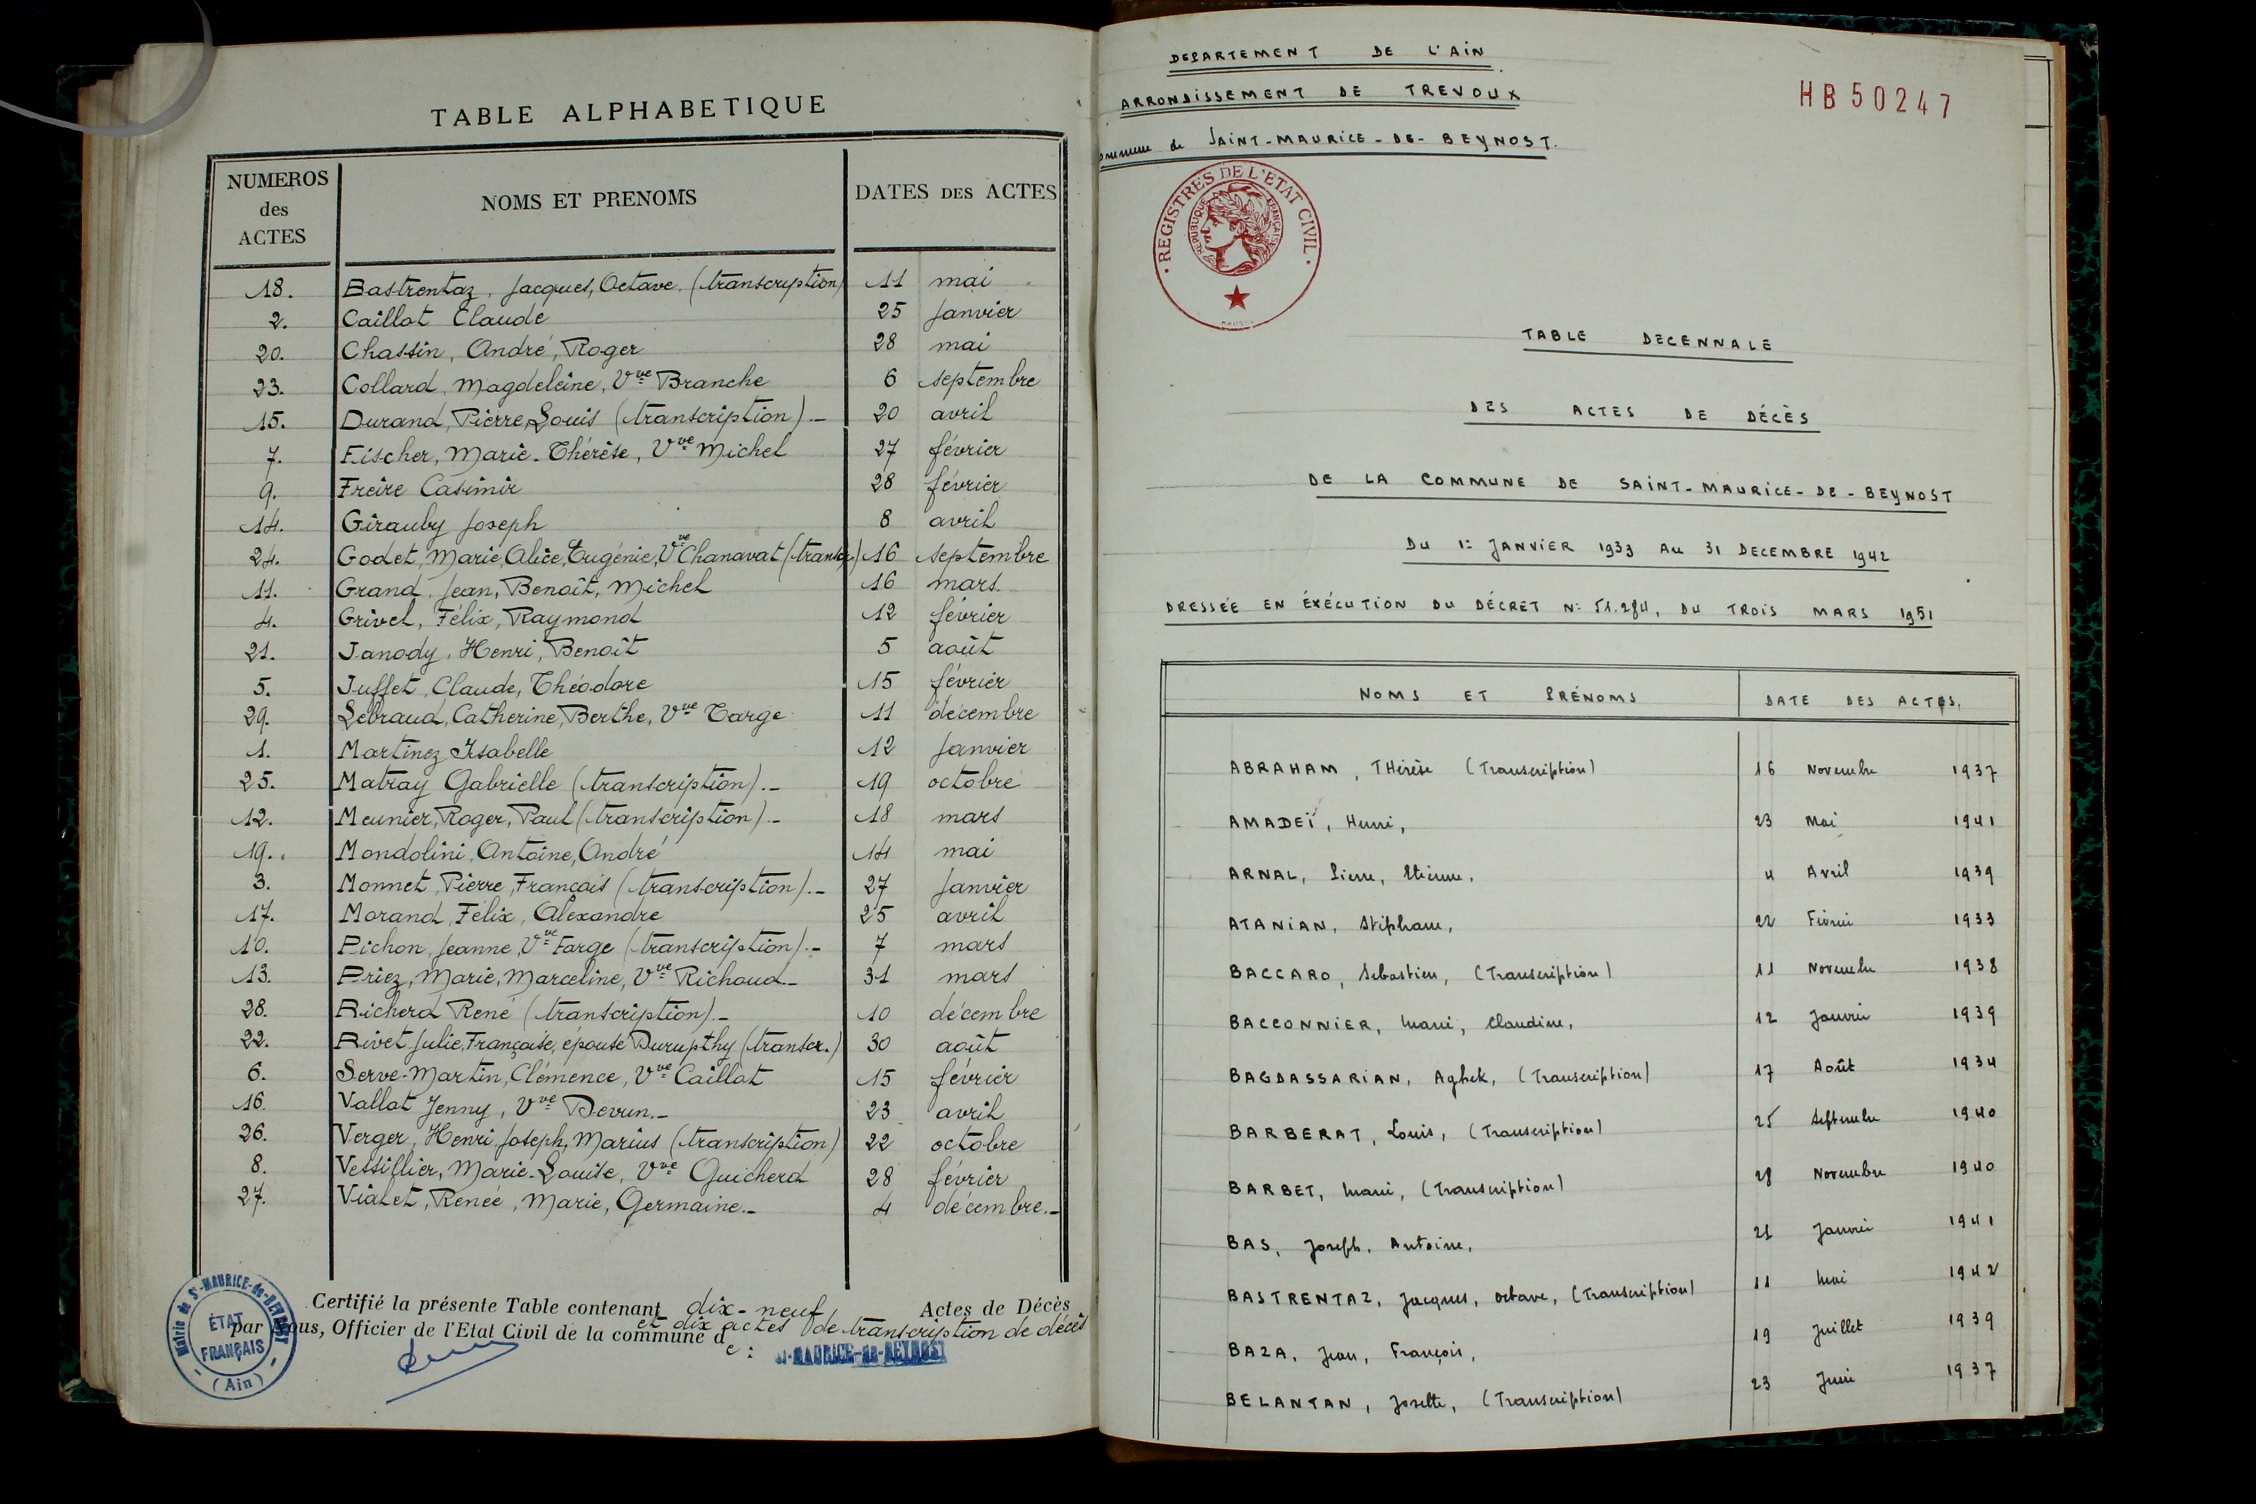 TABLE ALPHABETIQUE
NUMEROS des ACTES NOMS ET PRENOMS DATES DES ACTES
18. Bastrentaz, Jacques, Octave. (transcription) 11 mai
2. Caillot Claude 25 Janvier
20. Chassin, André, Roger 28 mai
23. Collard, Magdeleine, Vve Branche 6 septembre
15. Durand, Pierre, Louis (transcription)._ 20 avril
7. Fischer, Marie-Thérèse, Vve Michel 27 février
9. Freire Casimir 28 février
14. Girauby Joseph 8 avril
24. Godet, Marie, Alice, Eugénie, Vve Chanavat (transcr) 16 septembre
11. Grand, Jean, Benoît, Michel 16 mars.
4. Grivel, Félix, Raymond 12 février
21. Janody, Henri, Benoît 5 août
5. Juffet, Claude, Théodore 15 février
29. Lebraud, Catherine, Berthe, Vve Targe 11 décembre
1. Martinez Isabelle 12 Janvier
25. Matray Gabrielle (transcription)._ 19 octobre
12. Meunier, Roger, Paul (transcription)._ 18 mars
19. Mondolini, Antoine, André 14 mai
3. Monnet, Pierre, François (transcription)._ 27 Janvier
17. Morand, Félix, Alexandre 25 avril
10. Pichon, Jeanne, Vve Farge (transcription)._ 7 mars
13. Priez, Marie, Marceline, Vve Richoud._ 31 mars
28. Richerd René (transcription)._ 10 décembre
22. Rivet Julie, Françoise, épouse Durupthy (transcr.) 30 août
6. Serve-Martin, Clémence, Vve Caillot 15 février
16. Vallot Jenny, Vve Devun._ 23 avril
26. Verger, Henri, Joseph, Marius (transcription) 22 octobre
8. Vessillier, Marie-Louise, Vve Guicherd 28 février
27. Vialet, Renée, Marie, Germaine._ 4 décembre._
Certifié la présente Table contenant dix-neuf Actes de Décès
et dix actes de transcription de décès
par nous, Officier de l'Etat Civil de la commune de :
St-MAURICE-de-BEYNOST
Mairie de St-MAURICE-de-BEYNOST
ÉTAT FRANÇAIS
(Ain)
DEPARTEMENT DE L'AIN
ARRONDISSEMENT DE TREVOUX
HB50247
Commune de SAINT-MAURICE-DE-BEYNOST.
REGISTRES DE L'ETAT CIVIL
REPUBLIQUE FRANÇAISE
TABLE DECENNALE
DES ACTES DE DÉCÈS
DE LA COMMUNE DE SAINT-MAURICE-DE-BEYNOST
DU 1er JANVIER 1933 AU 31 DECEMBRE 1942
DRESSÉE EN ÉXÉCUTION DU DÉCRET N° 51.284, DU TROIS MARS 1951
NOMS ET PRÉNOMS DATE DES ACTES.
ABRAHAM, THérèse (Transcription) 16 Novembre 1937
AMADEÏ, Henri, 23 Mai 1941
ARNAL, Pierre, Etienne, 4 Avril 1939
ATANIAN, Stéphane, 22 Février 1933
BACCARO, Sebastien, (Transcription) 11 Novembre 1938
BACCONNIER, Marie, Claudine, 12 Janvier 1939
BAGDASSARIAN, Aghek, (Transcription) 17 Août 1934
BARBERAT, Louis, (Transcription) 25 Septembre 1940
BARBET, Marie, (Transcription) 28 Novembre 1940
BAS, Joseph, Antoine, 21 Janvier 1941
BASTRENTAZ, Jacques, Octave, (Transcription) 11 Mai 1942
BAZA, Jean, François, 19 Juillet 1939
BELANTAN, Josette, (Transcription) 23 Juin 1937